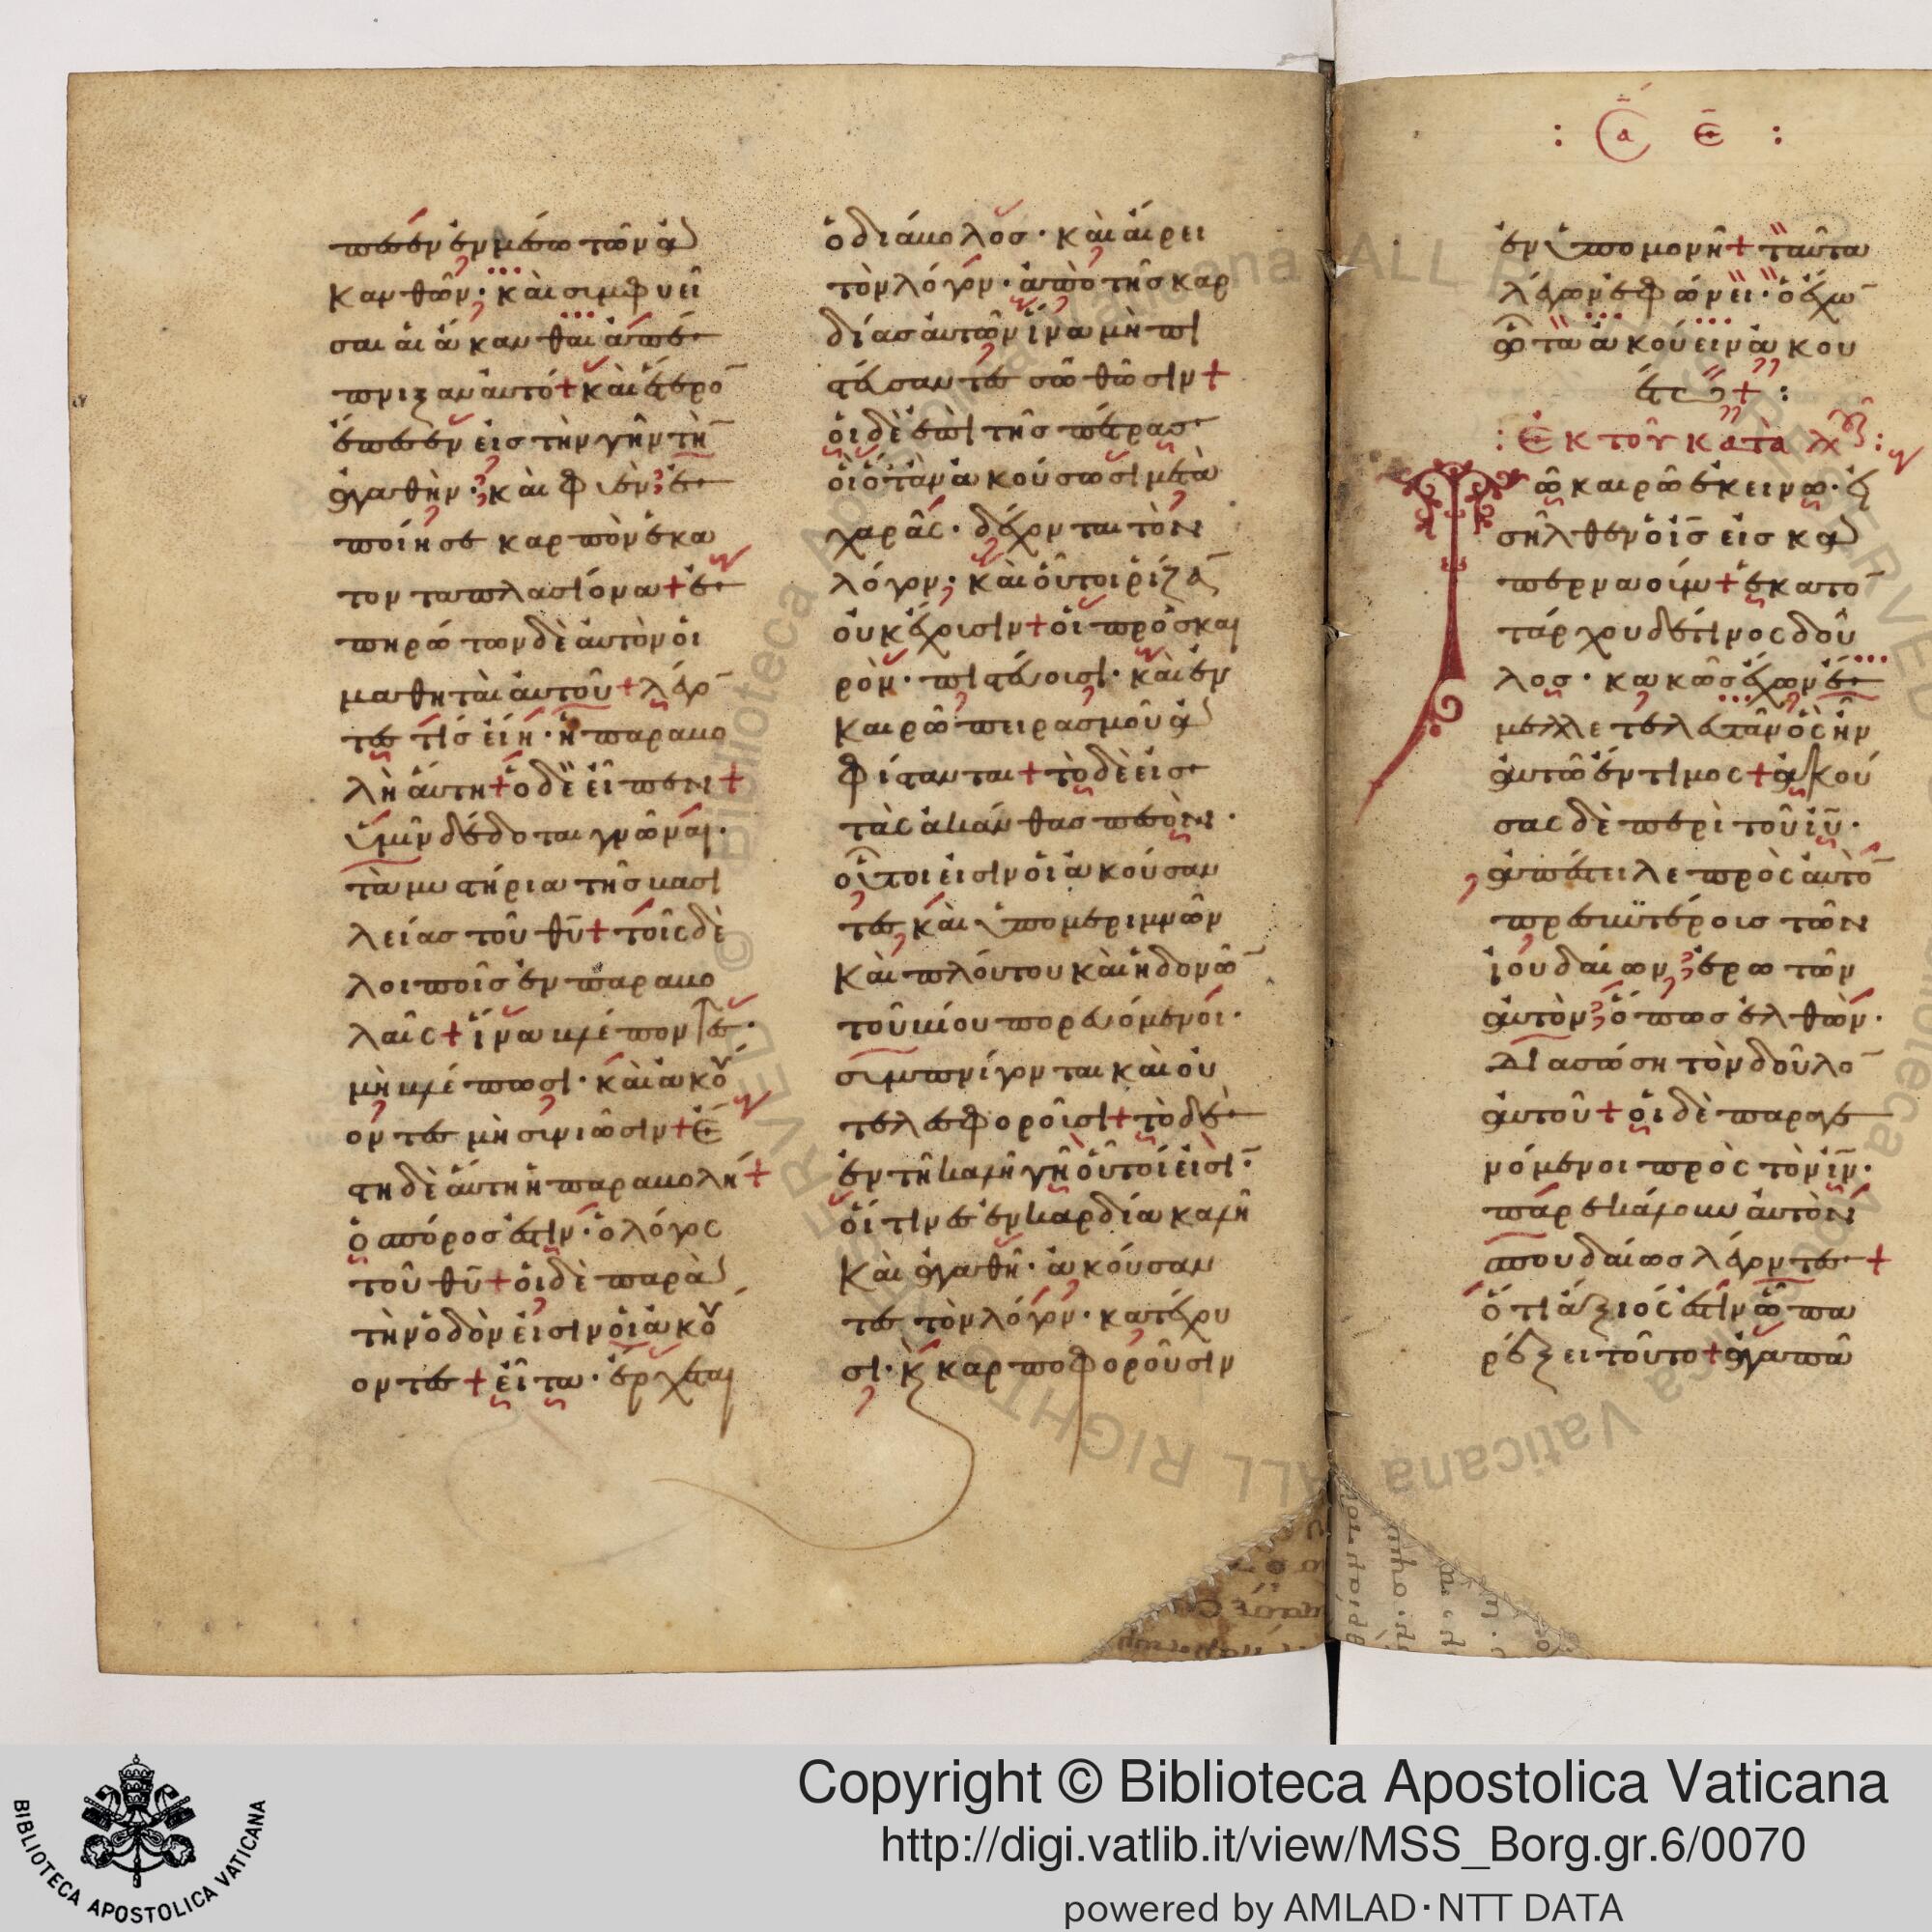 πεσεν ἐν μέσω τῶν ἀ
κανθῶν· καὶ συμφυεῖ
σαι αἱ ἄκανθαι ἀπέ
πνιξαν αὐτό + καὶ ἕτερο̄
ἔπεσεν εἰς τὴν γῆν τὴ̄
ἀγαθὴν· καὶ φυὲν ἐ
ποίησε καρπὸν ἑκα
τονταπλασίονα + ἐ
πηρώτων δὲ αὐτὸν οἱ
μαθηταὶ αὐτοῦ + λέγο̄
τες τίς εἴη· ἡ παραβο
λὴ αὕτη + ὁ δὲ εἶπεν +
ὑμῖν δέδοται γνῶναι·
τὰ μυστήρια τῆς βασι
λείας τοῦ θῡ + τοῖς δὲ
λοιποῖς ἐν παραβο
λαῖς + ἵνα βλέποντες·
μὴ βλέπωσι· καὶ ἀκού
οντες μὴ συνιῶσιν + Ἔ
στη δὲ αὕτη ἡ παραβολή +
ὁ σπόρος ἐστὶν· ὁ λόγος
τοῦ θῡ + οἱ δὲ παρὰ
τὴν ὁδὸν εἰσὶν οἱ ἀκού
οντες + εἶτα· ἔρχεται
ὁ διάβολος· καὶ αἴρει
τὸν λόγον· ἀπὸ τῆς καρ
δίας αὐτῶν ἵνα μὴ πι
στεύσαντες σωθῶσιν +
οἱ δὲ ἐπὶ τῆς πέτρας
οἳ ὅταν ἀκούσωσι μετὰ
χαρᾶς· δέχονται τὸν
λόγον· καὶ οὗτοι ῥίζᾱ
οὐκ ἔχουσιν + οἳ πρὸς και
ρὸν· πιστεύουσι· καὶ ἐν
καιρῶ πειρασμοῦ ἀ
φίστανται + τὸ δὲ εἰς
τὰς ἀκάνθας πεσὸν·
οὗτοι εἰσὶν οἱ ἀκούσαν
τες καὶ ὑπὸ μεριμνῶν
καὶ πλούτου καὶ ἡδονῶ̄
τοῦ βίου πορευόμενοι·
συμπνίγονται καὶ οὐ
τελεσφοροῦσι + τὸ δὲ
ἐν τῆ καλῆ γῆ οὗτοί εἰσῑ·
οἵτινες ἐν καρδία καλῆ
καὶ ἀγαθῆ· ἀκούσαν
τες τὸν λόγον· κατέχου
σι· κ̀ καρποφοροῦσιν
: Cα Ε :
ἐν ὑπομονῆ + ταῦτα
λέγων ἐφώνει· ὁ ἔχω̄
ὦτα ἀκούειν ἀκου
έτω + :
: Ἐκ τοῦ κατὰ λȣ :
Τῶ καιρῶ ἐκείνω· εἰ
σῆλθεν ὁ ῑς εἰς κα
περναούμ + ἑκατο̄
τάρχου δέ τινος δοῦ
λος· κακῶς ἔχων ἔ
μελλε τελευτᾶν ὃς ἦν
αὐτῶ ἔντιμος + ἀκού
σας δὲ περὶ τοῦ ῑῡ·
ἀπέστειλε πρὸς αὐτὸ̄
πρεσβυτέρους τῶν
ἰουδαίων ἐρωτῶν
αὐτὸν ὅπως ἐλθὼν·
διασώση τὸν δοῦλο̄
αὐτοῦ + οἱ δὲ παραγε
νόμενοι πρὸς τὸν ῑν̄·
παρεκάλουν αὐτὸν
σπουδαίως λέγοντες +
ὅτι ἄξιός ἐστιν ὧ πα
ρέξει τοῦτο + ἀγαπᾶ
Biblioteca Apostolica Vaticana ALL RIGHTS RESERVED ©
BIBLIOTECA APOSTOLICA VATICANA
Copyright © Biblioteca Apostolica Vaticana
http://digi.vatlib.it/view/MSS_Borg.gr.6/0070
powered by AMLAD·NTT DATA